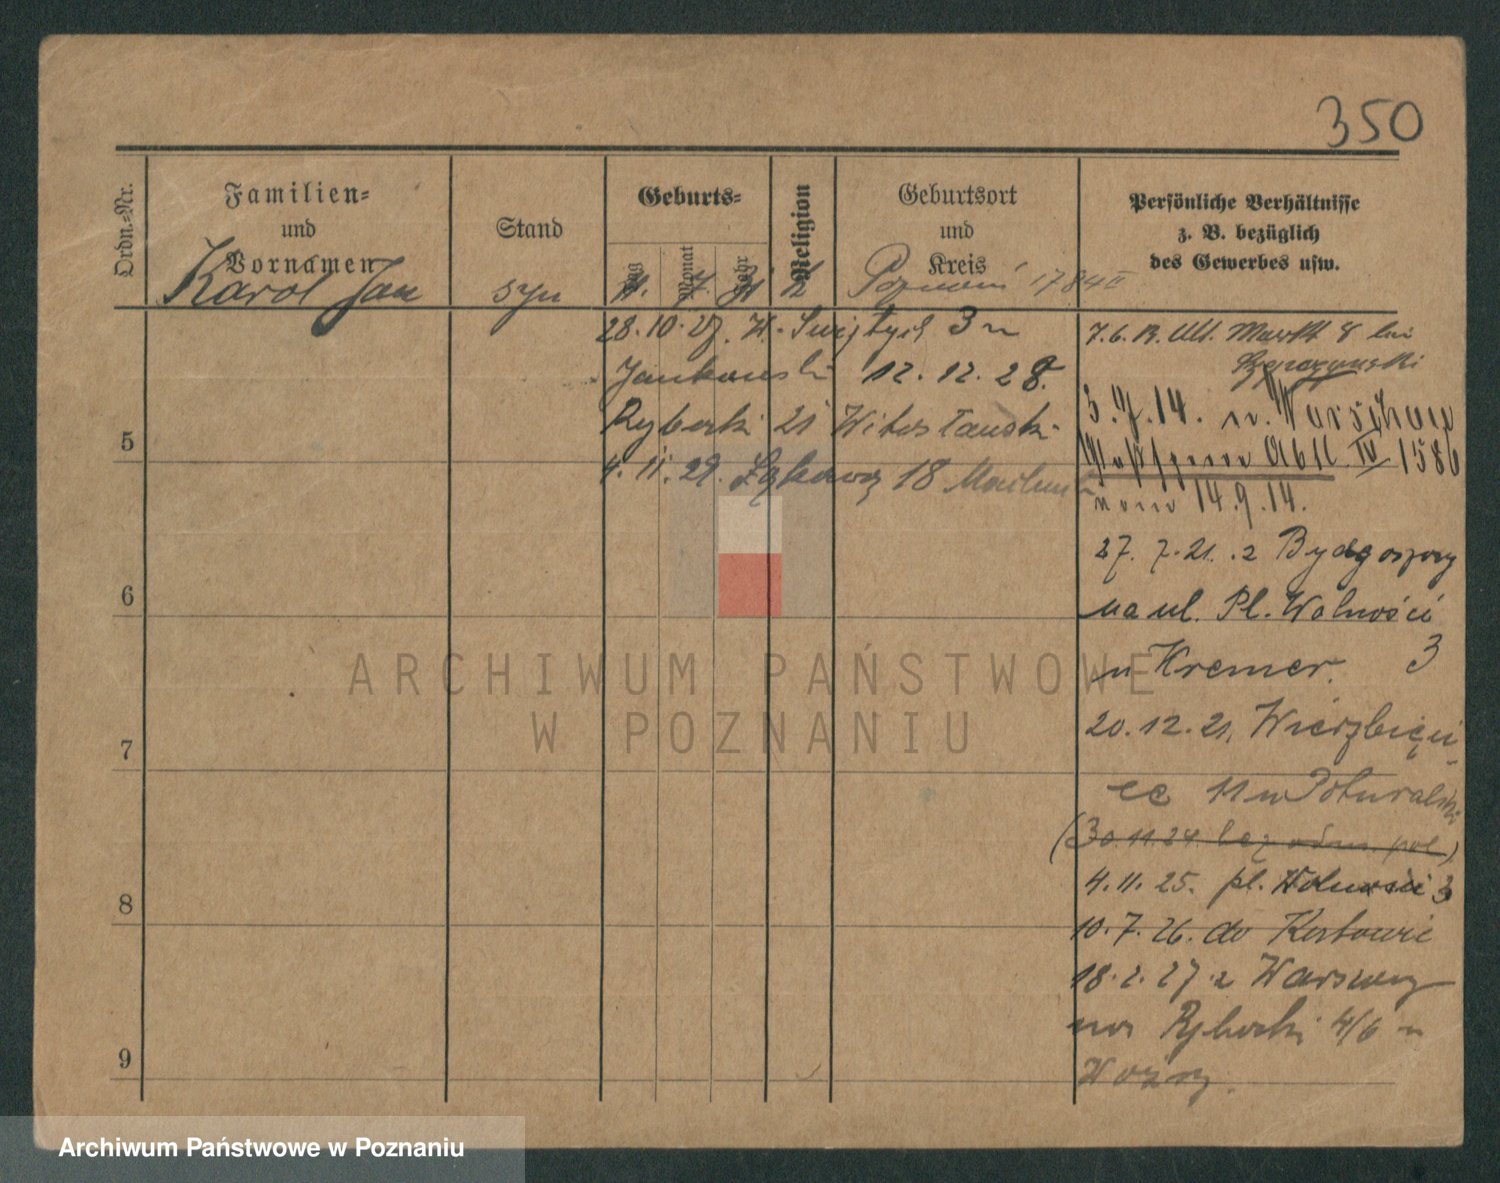 350
Ordn.-Nr.
Familien-
und
Vornamen
Stand
Geburts-
Tag
Monat
Jahr
Religion
Geburtsort
und
Kreis
Persönliche Verhältnisse
z. B. bezüglich
des Gewerbes usw.
Karol Jan
syn
11. 7. 31 k
Poznań
28.10.27. W. Świętych 3 u
12.12.28.
Rybaki 21
4.11.29. Łąkowa 18
7.6. Alt. Markt 8 bei
3.9.14. n. Warschau
1586
vom 14.9.14.
27.7.21. z Bydgoszczy
na ul. Pl. Wolności
u Kremer. 3
20.12.21. Wierzbięci-
ce 11 u
(30.11.24. bez odm. pol.)
4.11.25. pl. Wolności 3
10.7.26. do
18.2.27 z Warszawy
na Rybaki 4/6 u
5
6
7
8
9
ARCHIWUM PAŃSTWOWE
W POZNANIU
Archiwum Państwowe w Poznaniu